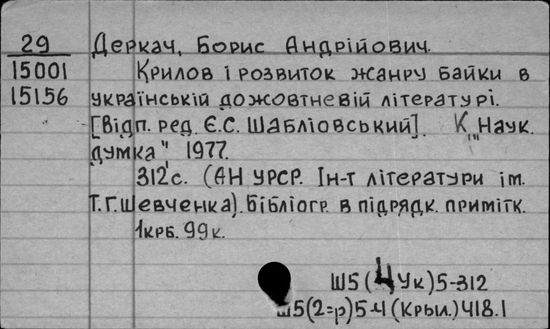 29 Деркач, Борис Андрійович.
15001 Крилов і розвиток жанру байки в
15156 українській дожовтневій літературі.
[Відп. ред. Є.С. Шабліовський]. К., "Наук.
думка", 1977.
312 с. (АН УРСР. Ін-т літератури ім.
Т.Г. Шевченка). Бібліогр. в підрядк. примітк.
1крб. 99к.
Ш5(4Ук)5-312
Ш5(2=р)5-4(Крыл.)418.1